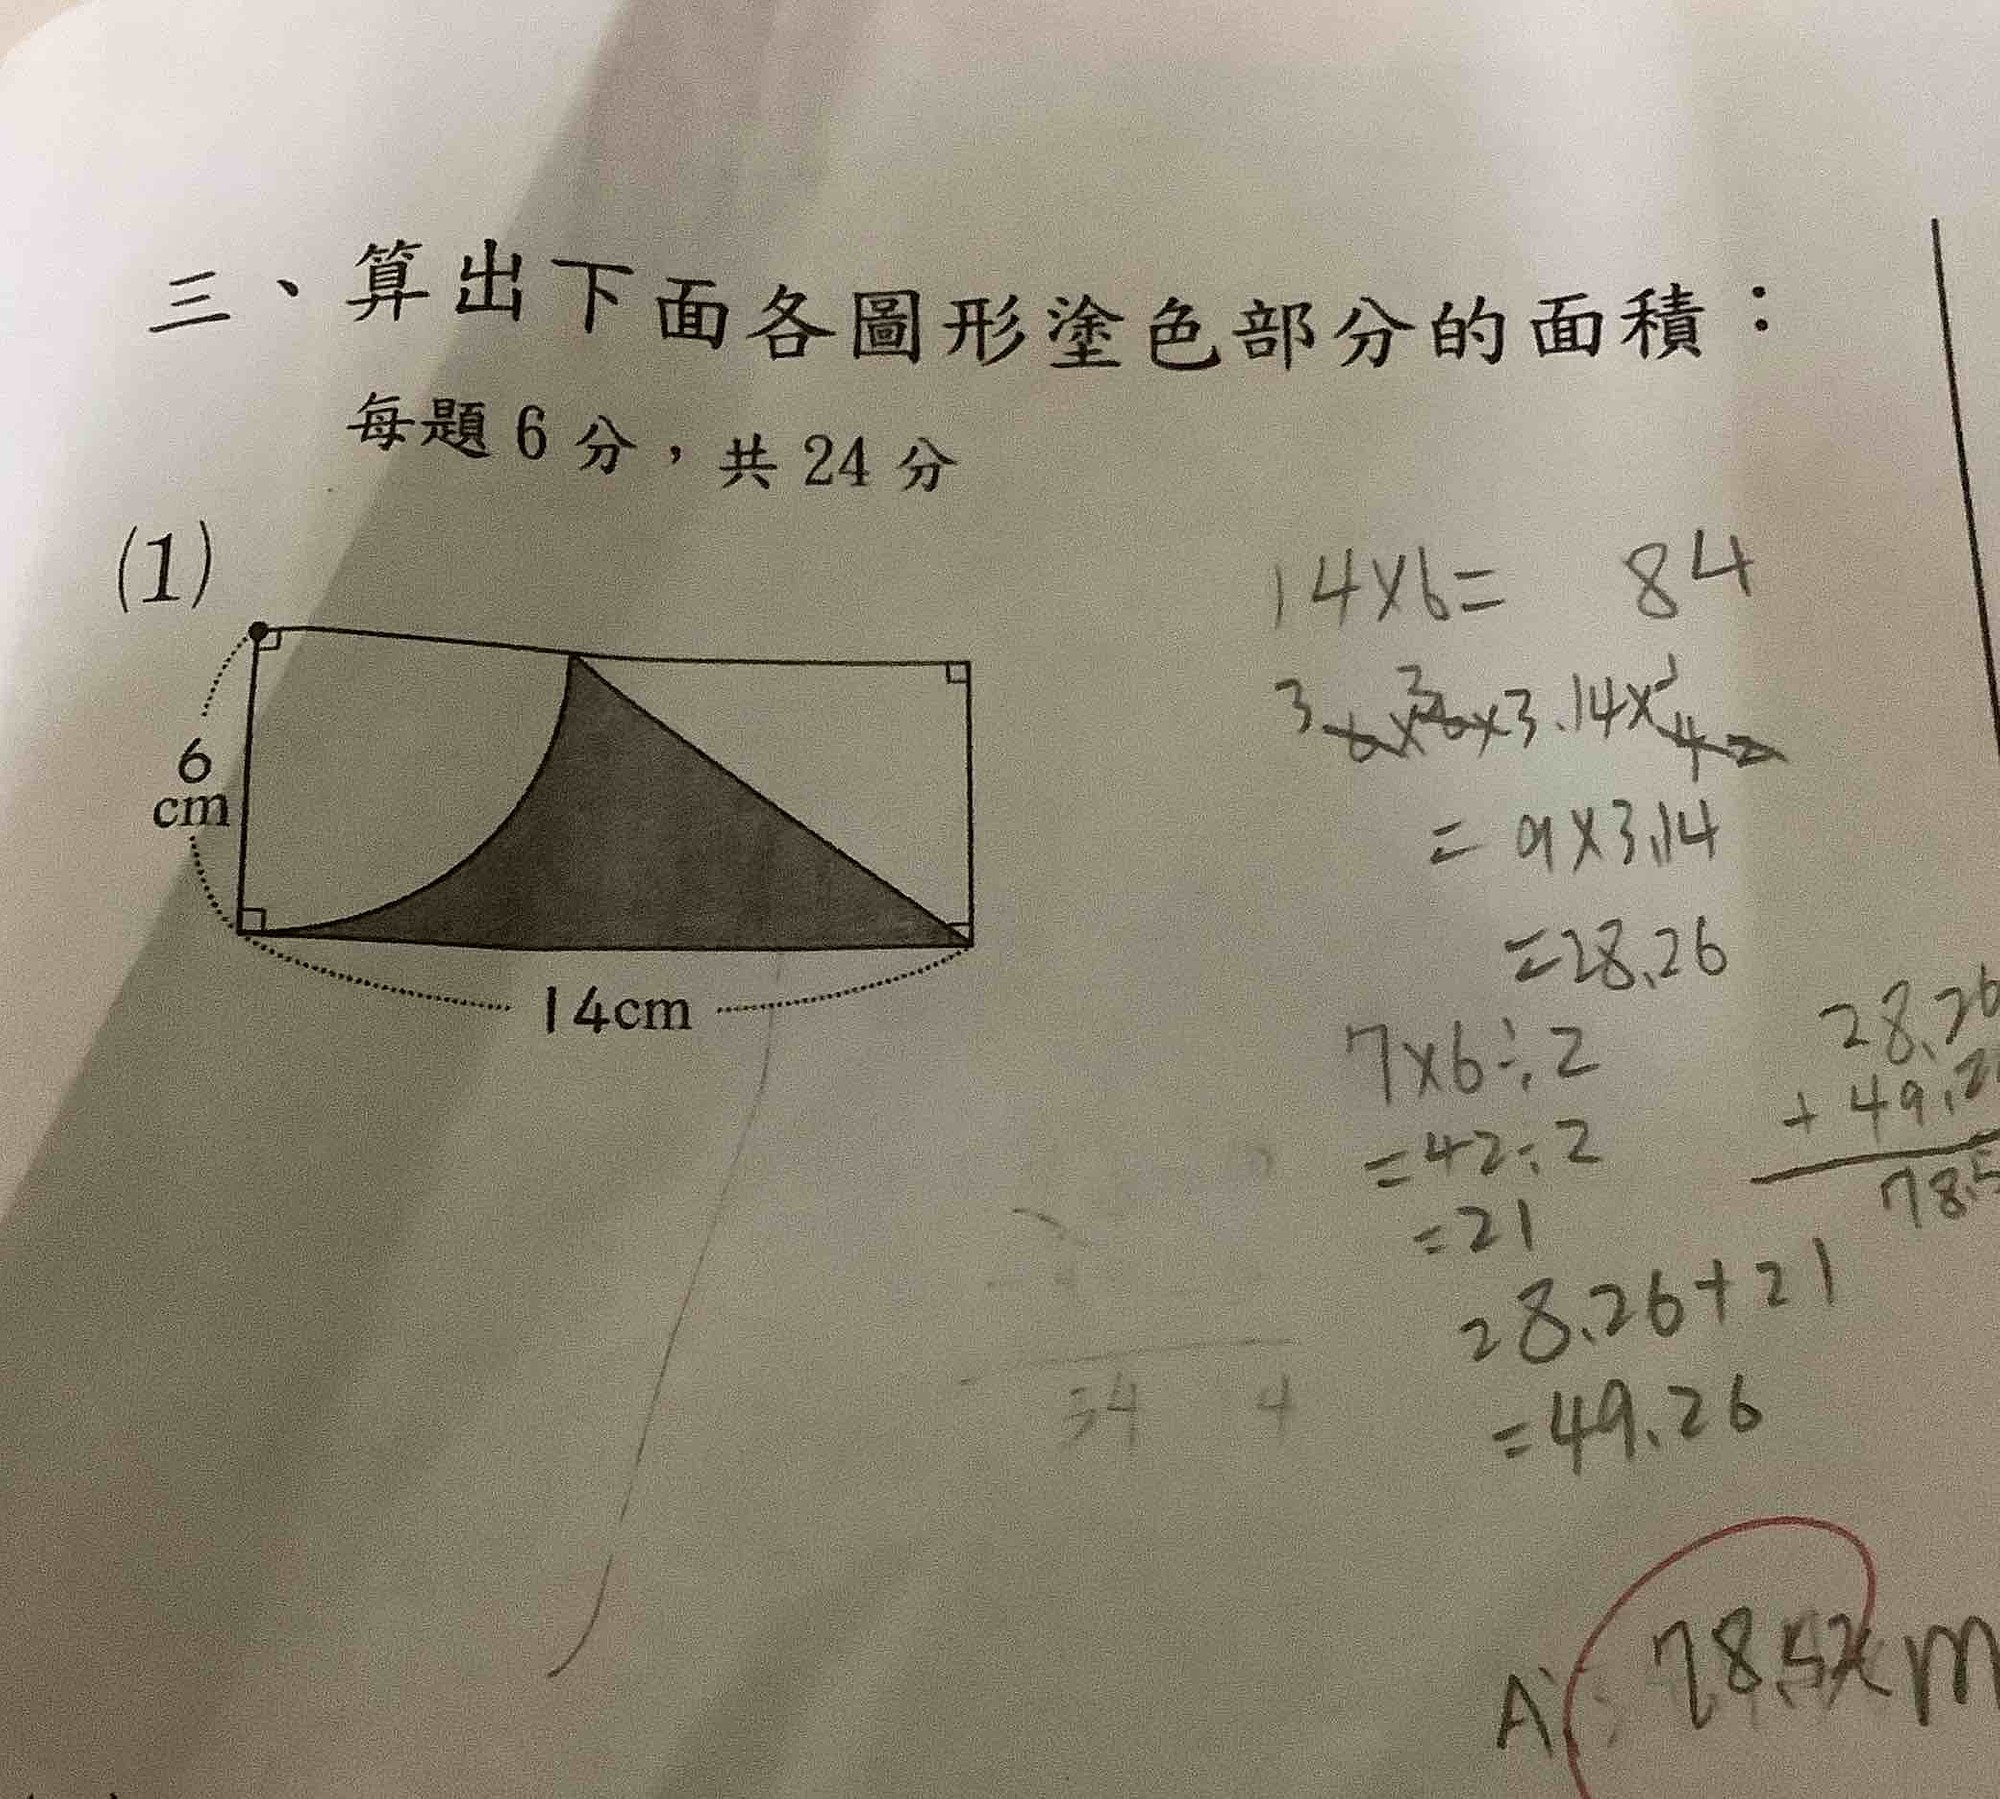 三、算出下面各圖形塗色部分的面積：
每題6分，共24分
(1)
6
cm
14cm
14×6= 84
= 9×3.14
=28.26
7×6÷2
=42÷2
=21
28.26+21
=49.26
28.26
+ 49.2
78.5
34 4
A: 78.52